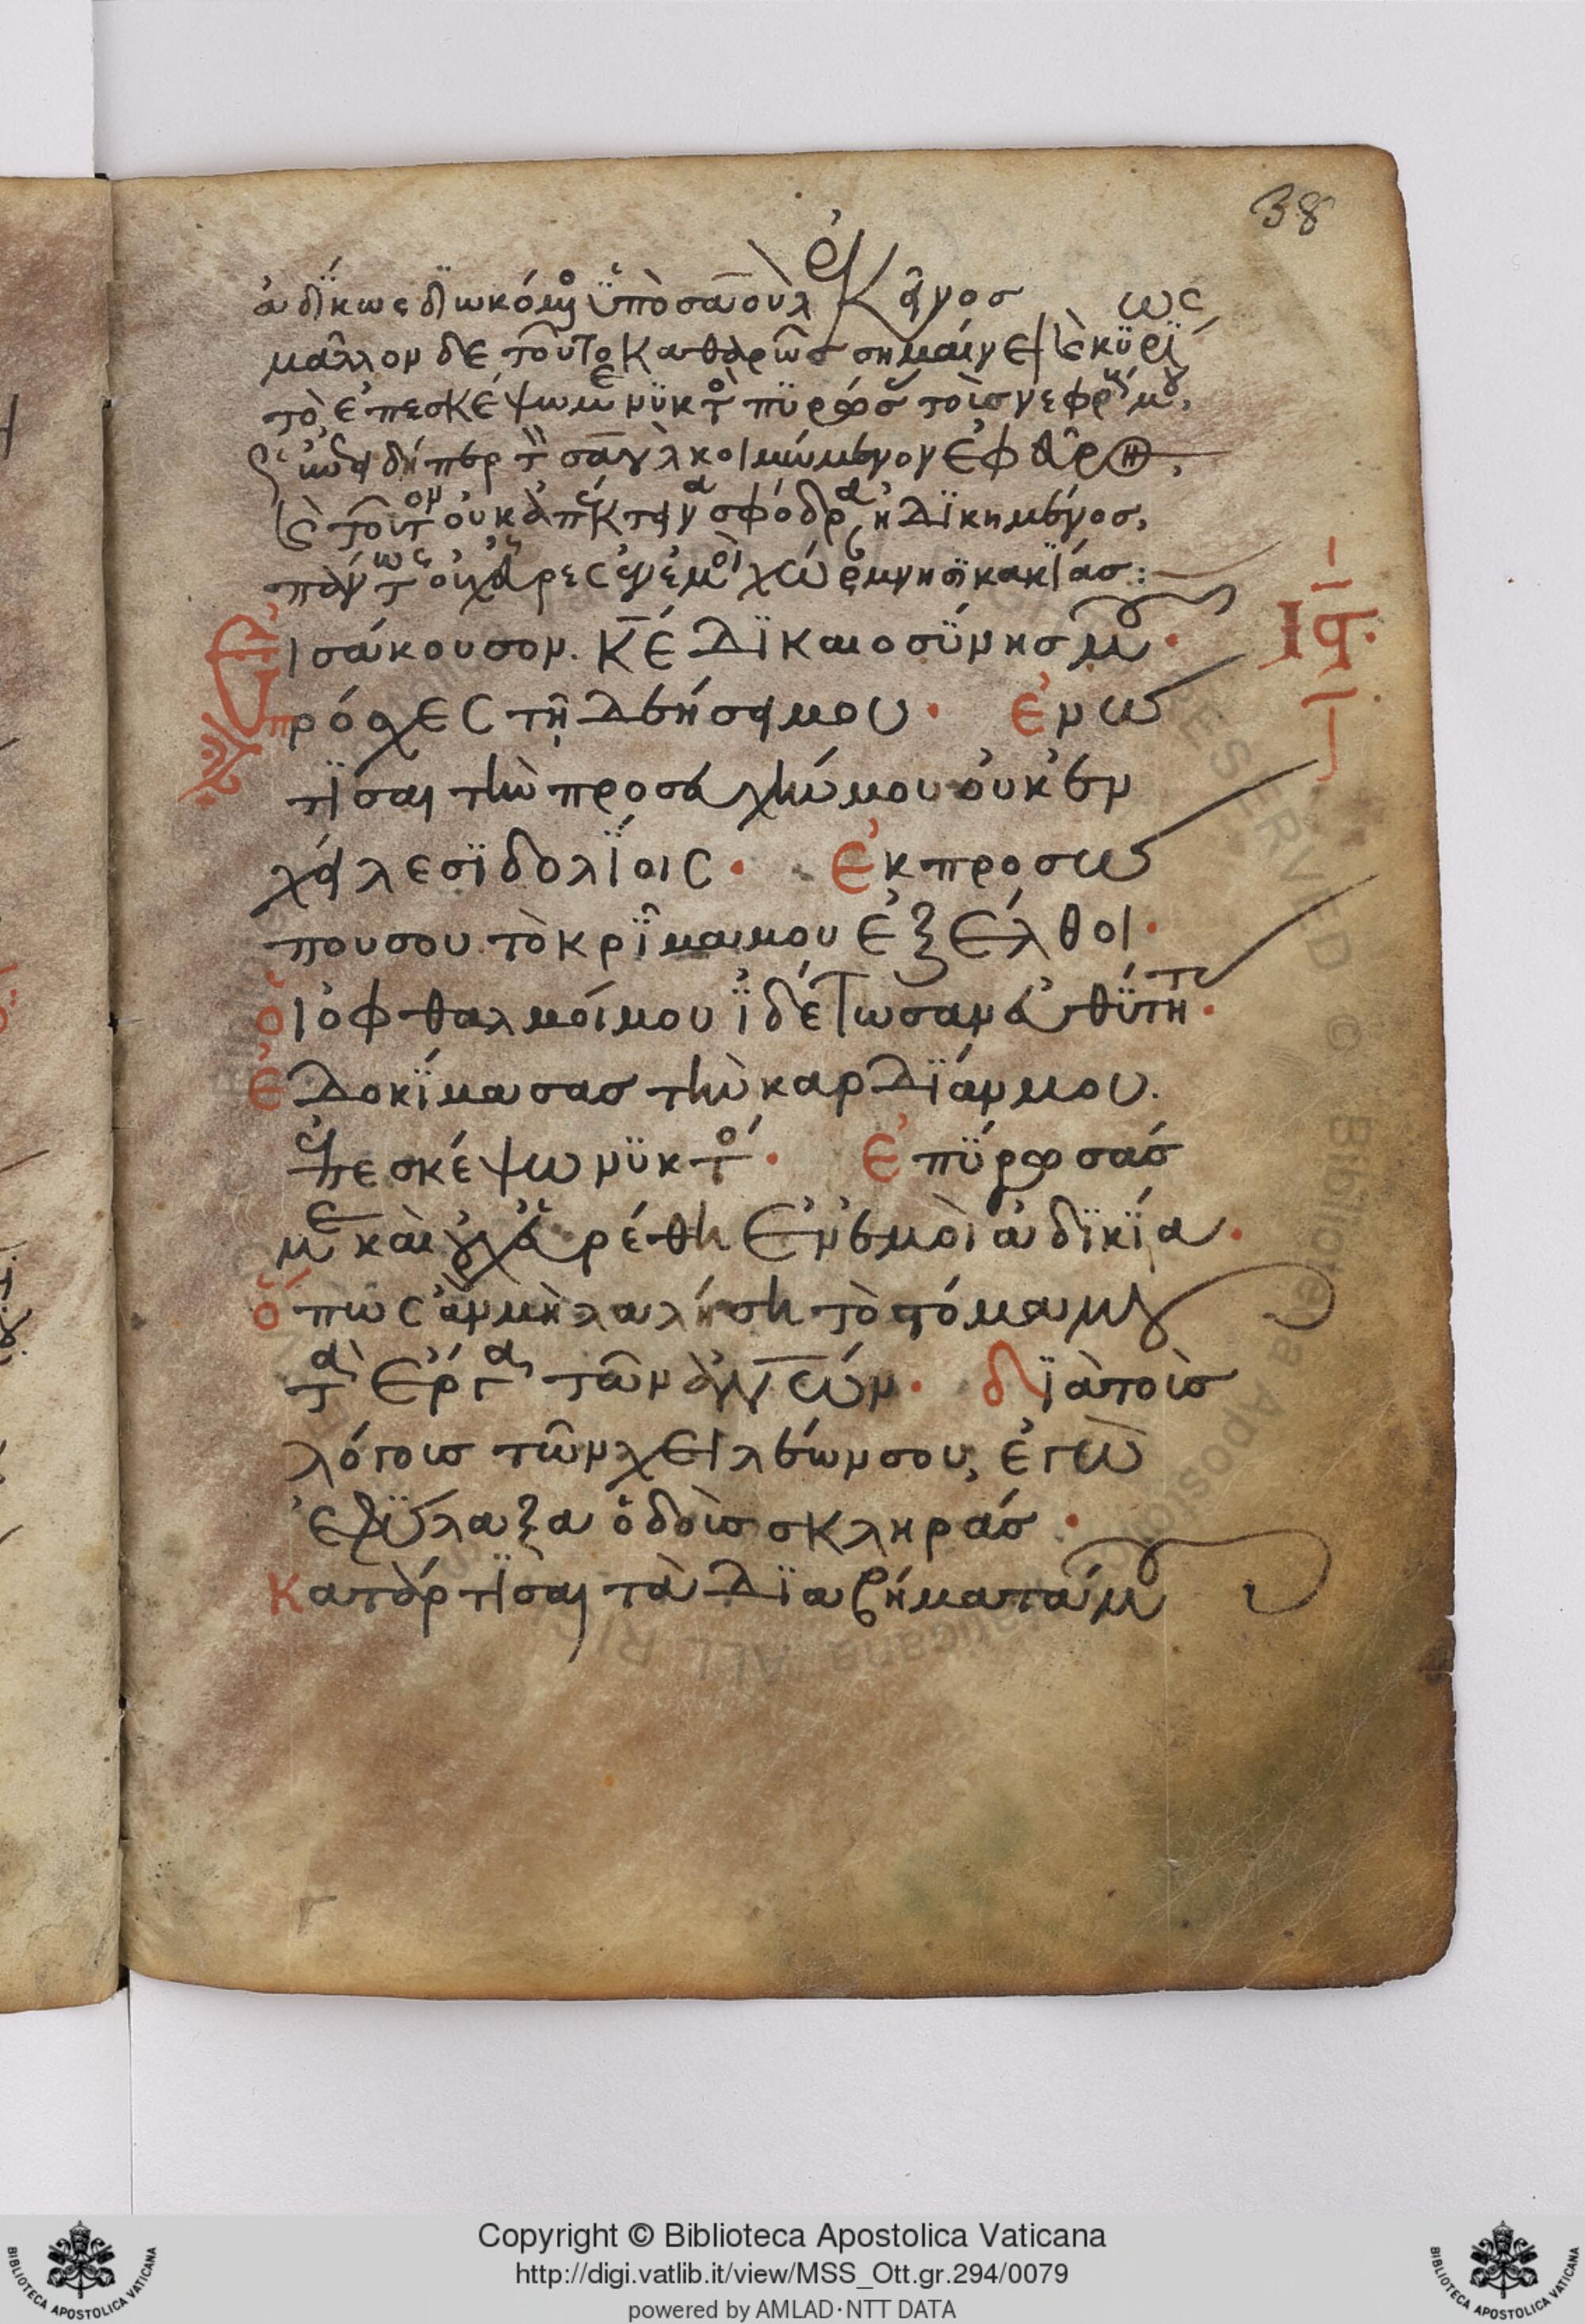 38
ἀδίκως διωκόμενος ὑπὸ σαοὺλ ἐκεῖνος ὡς
μᾶλλον δὲ τοῦτο καθαρῶς σημαίνει καὶ κυρι
τὸ ἐπεσκέψω με νυκτὸς πυρφ τοῖς νεφροῖς μου,
τὸν σαοὺλ κοιμώμενον
καὶ τοῦτον οὐκ ἀπέκτεινα σφόδρα ἠδικημένος,
πάντως ὅτι χάρες ἐν ἐμοὶ χωρὶς μνησικακίας:
Εἰσάκουσον κε δικαιοσύνης μου·
πρόσχες τῇ δεήσει μου· ἐνω
τίσαι τὴν προσευχήν μου οὐκ ἐν
χείλεσι δολίοις· Ἐκ προσώ
που σου τὸ κρῖμα μου ἐξέλθοι·
οἱ ὀφθαλμοί μου ἰδέτωσαν εὐθύτητ·
Ἐδοκίμασας τὴν καρδίαν μου.
ἐπεσκέψω νυκτός· Ἐπύρωσάς
με καὶ οὐχ εὑρέθη ἐν ἐμοὶ ἀδικία·
ὅπως ἂν μὴ λαλήση τὸ στόμα μου
τὰ ἔργα τῶν ανων· διὰ τοὺς
λόγους τῶν χειλέων σου, ἐγὼ
ἐφύλαξα ὁδοὺς σκληράς·
Κατάρτισαι τὰ διαβήματά μου
ις·
Copyright © Biblioteca Apostolica Vaticana
http://digi.vatlib.it/view/MSS_Ott.gr.294/0079
powered by AMLAD·NTT DATA
BIBLIOTECA APOSTOLICA VATICANA
BIBLIOTECA APOSTOLICA VATICANA